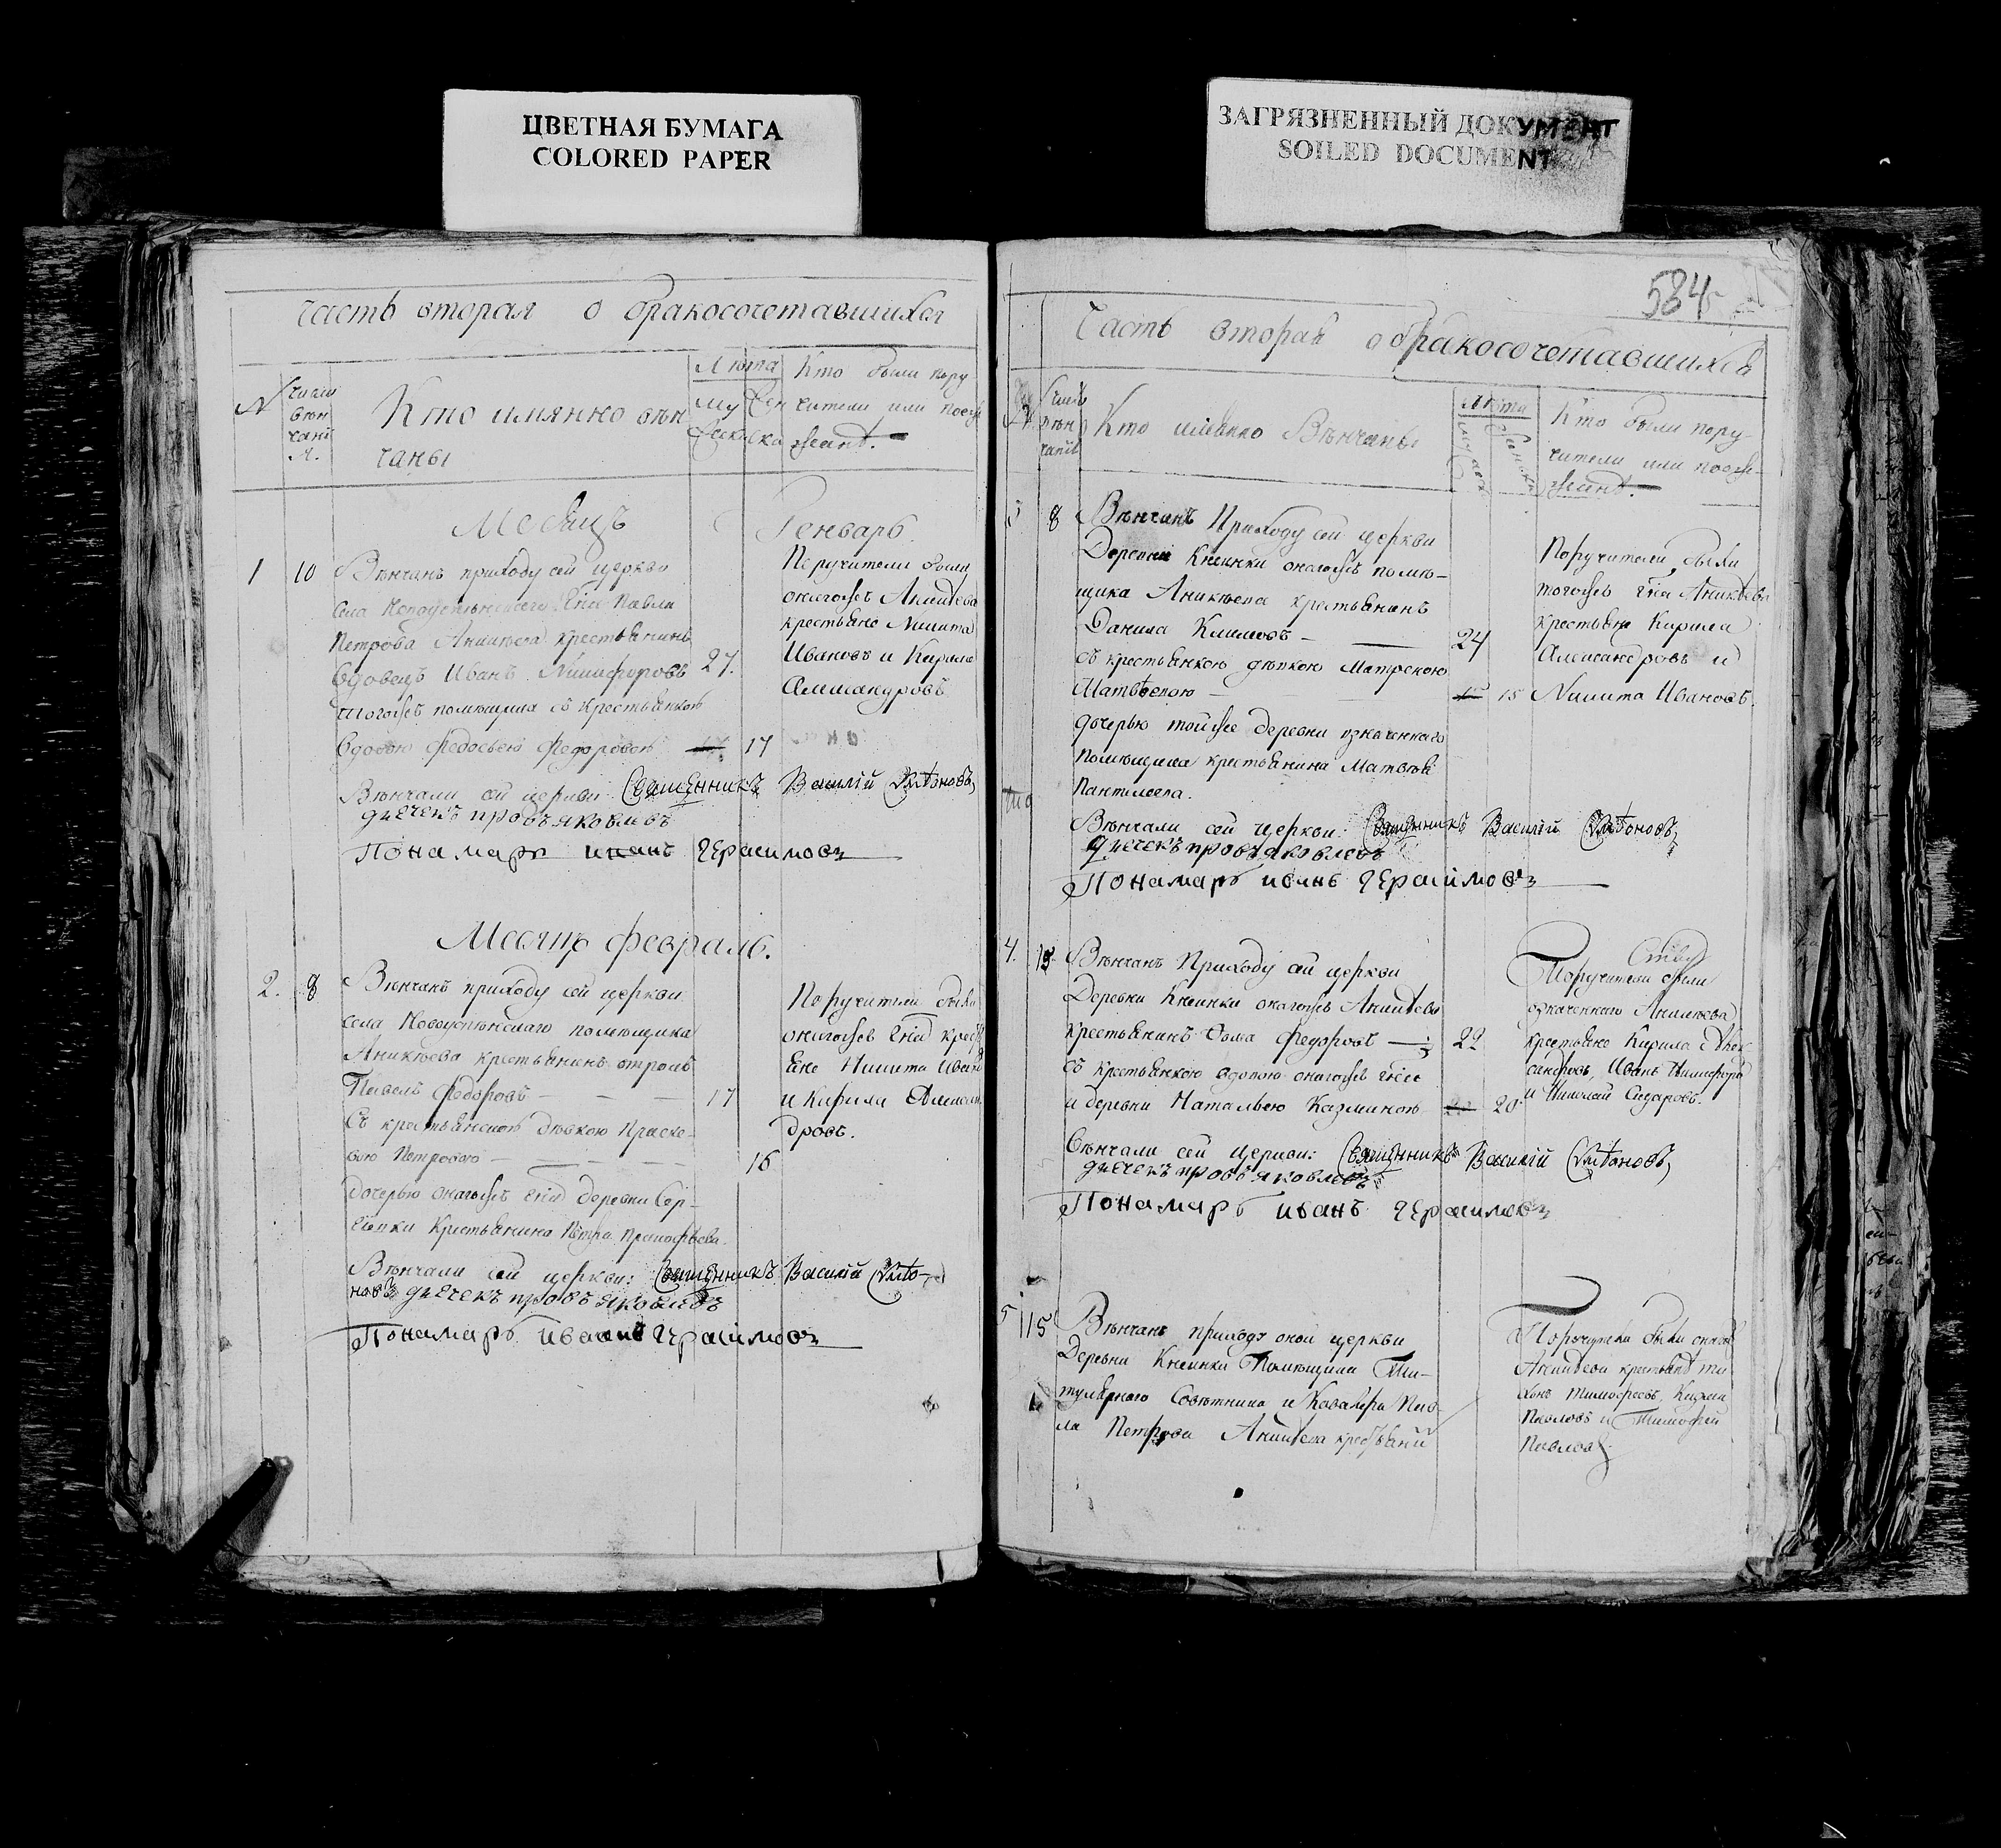 ЦВЕТНАЯ БУМАГА
COLORED PAPER
ЗАГРЯЗНЕННЫЙ ДОКУМЕНТ
SOILED DOCUMENT
часть вторая о бракосочетавшихся
№
число
вѣн
чані
я.
Кто имянно вѣн
чаны
Лѣта
му
жен
жеска
ска
Кто были пору
чители или поезж
жанѣ.
Месяцъ Генварь.
1 10 Вѣнчанъ приходу сей церкви
села Новоуспѣнскаго Гна Павла
Петрова Аникѣева крестьянинъ
вдовецъ Иванъ Никифоровъ 27.
тогожъ помѣщика съ крестьянкою
вдовою Федосьею Федоровою 17
Поручители были
оногожъ Аникѣева
крестьяне Никита
Ивановъ и Кирила
Александровъ
Вѣнчали сей церкви Священникъ Василій Антоновъ,
дьячекъ провъ яковлевъ
Понамарь иванъ герасимовъ
Месяцъ февраль.
2. 8 Вѣнчанъ приходу сей церкви
села Новоуспѣнскаго помѣщика
Аникѣева крестьянинъ отрокъ
Павелъ Федоровъ 17
Съ крестьянскою дѣвкою Праско
вью Петровою 16
дочерью оногожъ Гна деревни Сер
крестьянина Петра Прокофьева.
Поручители были
оногожъ Гна крест
яне Никита Ивано
и Кирила Алексан
дровъ.
Вѣнчали сей церкви: Священникъ Василій Анто-
новъ дьячекъ провъ яковлевъ
Понамарь иванъ герасимовъ
584
Часть вторая о бракосочетавшихся
число
вѣн
чанія
Кто имянно Вѣнчаны
Лѣта
мужск
женска
Кто были пору
чители или поезж-
жанѣ.
8 Вѣнчанъ Приходу сей церкви
Деревни Княинки оногожъ помѣ-
щика Аникѣева крестьянинъ
Данила Климовъ 24
съ крестьянкою дѣвкою Матреною
Матвѣевою 15
дочерью тойже деревни означеннаго
помѣщика крестьянина Матвѣя
Пантилеева.
Поручители были
тогожъ Гна Аникѣева
крестьяне Кирила
Александровъ и
Никита Ивановъ.
Вѣнчали сей церкви: Священникъ Василій Антоновъ,
дьячекъ провъ яковлевъ
Понамарь иванъ герасимовъ
4. 13 Вѣнчанъ Приходу сей церкви
Деревни Княинки оногожъ Аникѣева
крестьянинъ Фома Федоровъ 22
съ крестьянкою вдовою оногожъ Гна
и деревни Натальею Казминою 20
Поручители были
означеннаго Аникѣева
крестьяне Кирила Алек
сандровъ, Иванъ Никифоро
и Николай Сидаровъ.
Вѣнчали сей церкви: Священникъ Василій Антоновъ,
дьячекъ провъ яковлевъ
Понамарь иванъ герасимовъ
5 15 Вѣнчанъ приходу оной церкви
Деревни Княинки Помѣщика Ти-
тулярнаго Совѣтника и Кавалера Пав-
ла Петрова Аникѣева крестьяни
Поручители были оногожъ
Аникѣева крестьяне Ти
хонъ Тимофеевъ, Кирила
Павловъ и Тимофей
Павловъ.